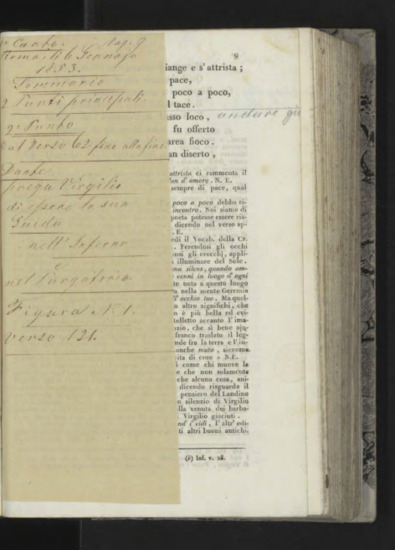 Canto. Pag. 9
1853.
Sommario
2 Punti principali.
2º Punto
dal verso 62 fino alla fine
Dante
prega Virgilio
di essere la sua
Guida
nell' Inferno
e
nel Purgatorio
Figura N. 1.
Verso 121.
9
iange e s'attrista;
pace,
poco a poco,
l tace.
sso loco, andare giù
fu offerto
area fioco.
an diserto,
attrista ci rammenta il
d'amore. N. E.
sempre di pace, qual
poco a poco debbo ri-
incontro. Noi siamo di
poeta potesse essere ris-
dicendo nel verso sp-
. E.
edi il Vocab. della Cr.
. Ferendosi gli occhi
uni gli orecchi, appli-
illuminare del Sole,
venni in luogo d'ogni
te nota a questo luogo
nella mente Geremia
l'occhio tuo. Ma quel-
n altro significhi, che
n è più bella ed evi-
telletto secanto l'ima-
zio, che si bene
franco traslato il leg-
nde fra la terra e l'in-
anche muto, siccome
ita di cose » N.E.
come chi muove la
e che non solamente
che alcuna cosa, ani-
dicendo risguarda il
pensiero del Landino
n silenzio di Virgilio
lla venuta dei barba-
Virgilio giaciuti.
nd' i' vidi, l'altr' edi-
ti altri buoni antichi.
(5) Inf. v. 28.